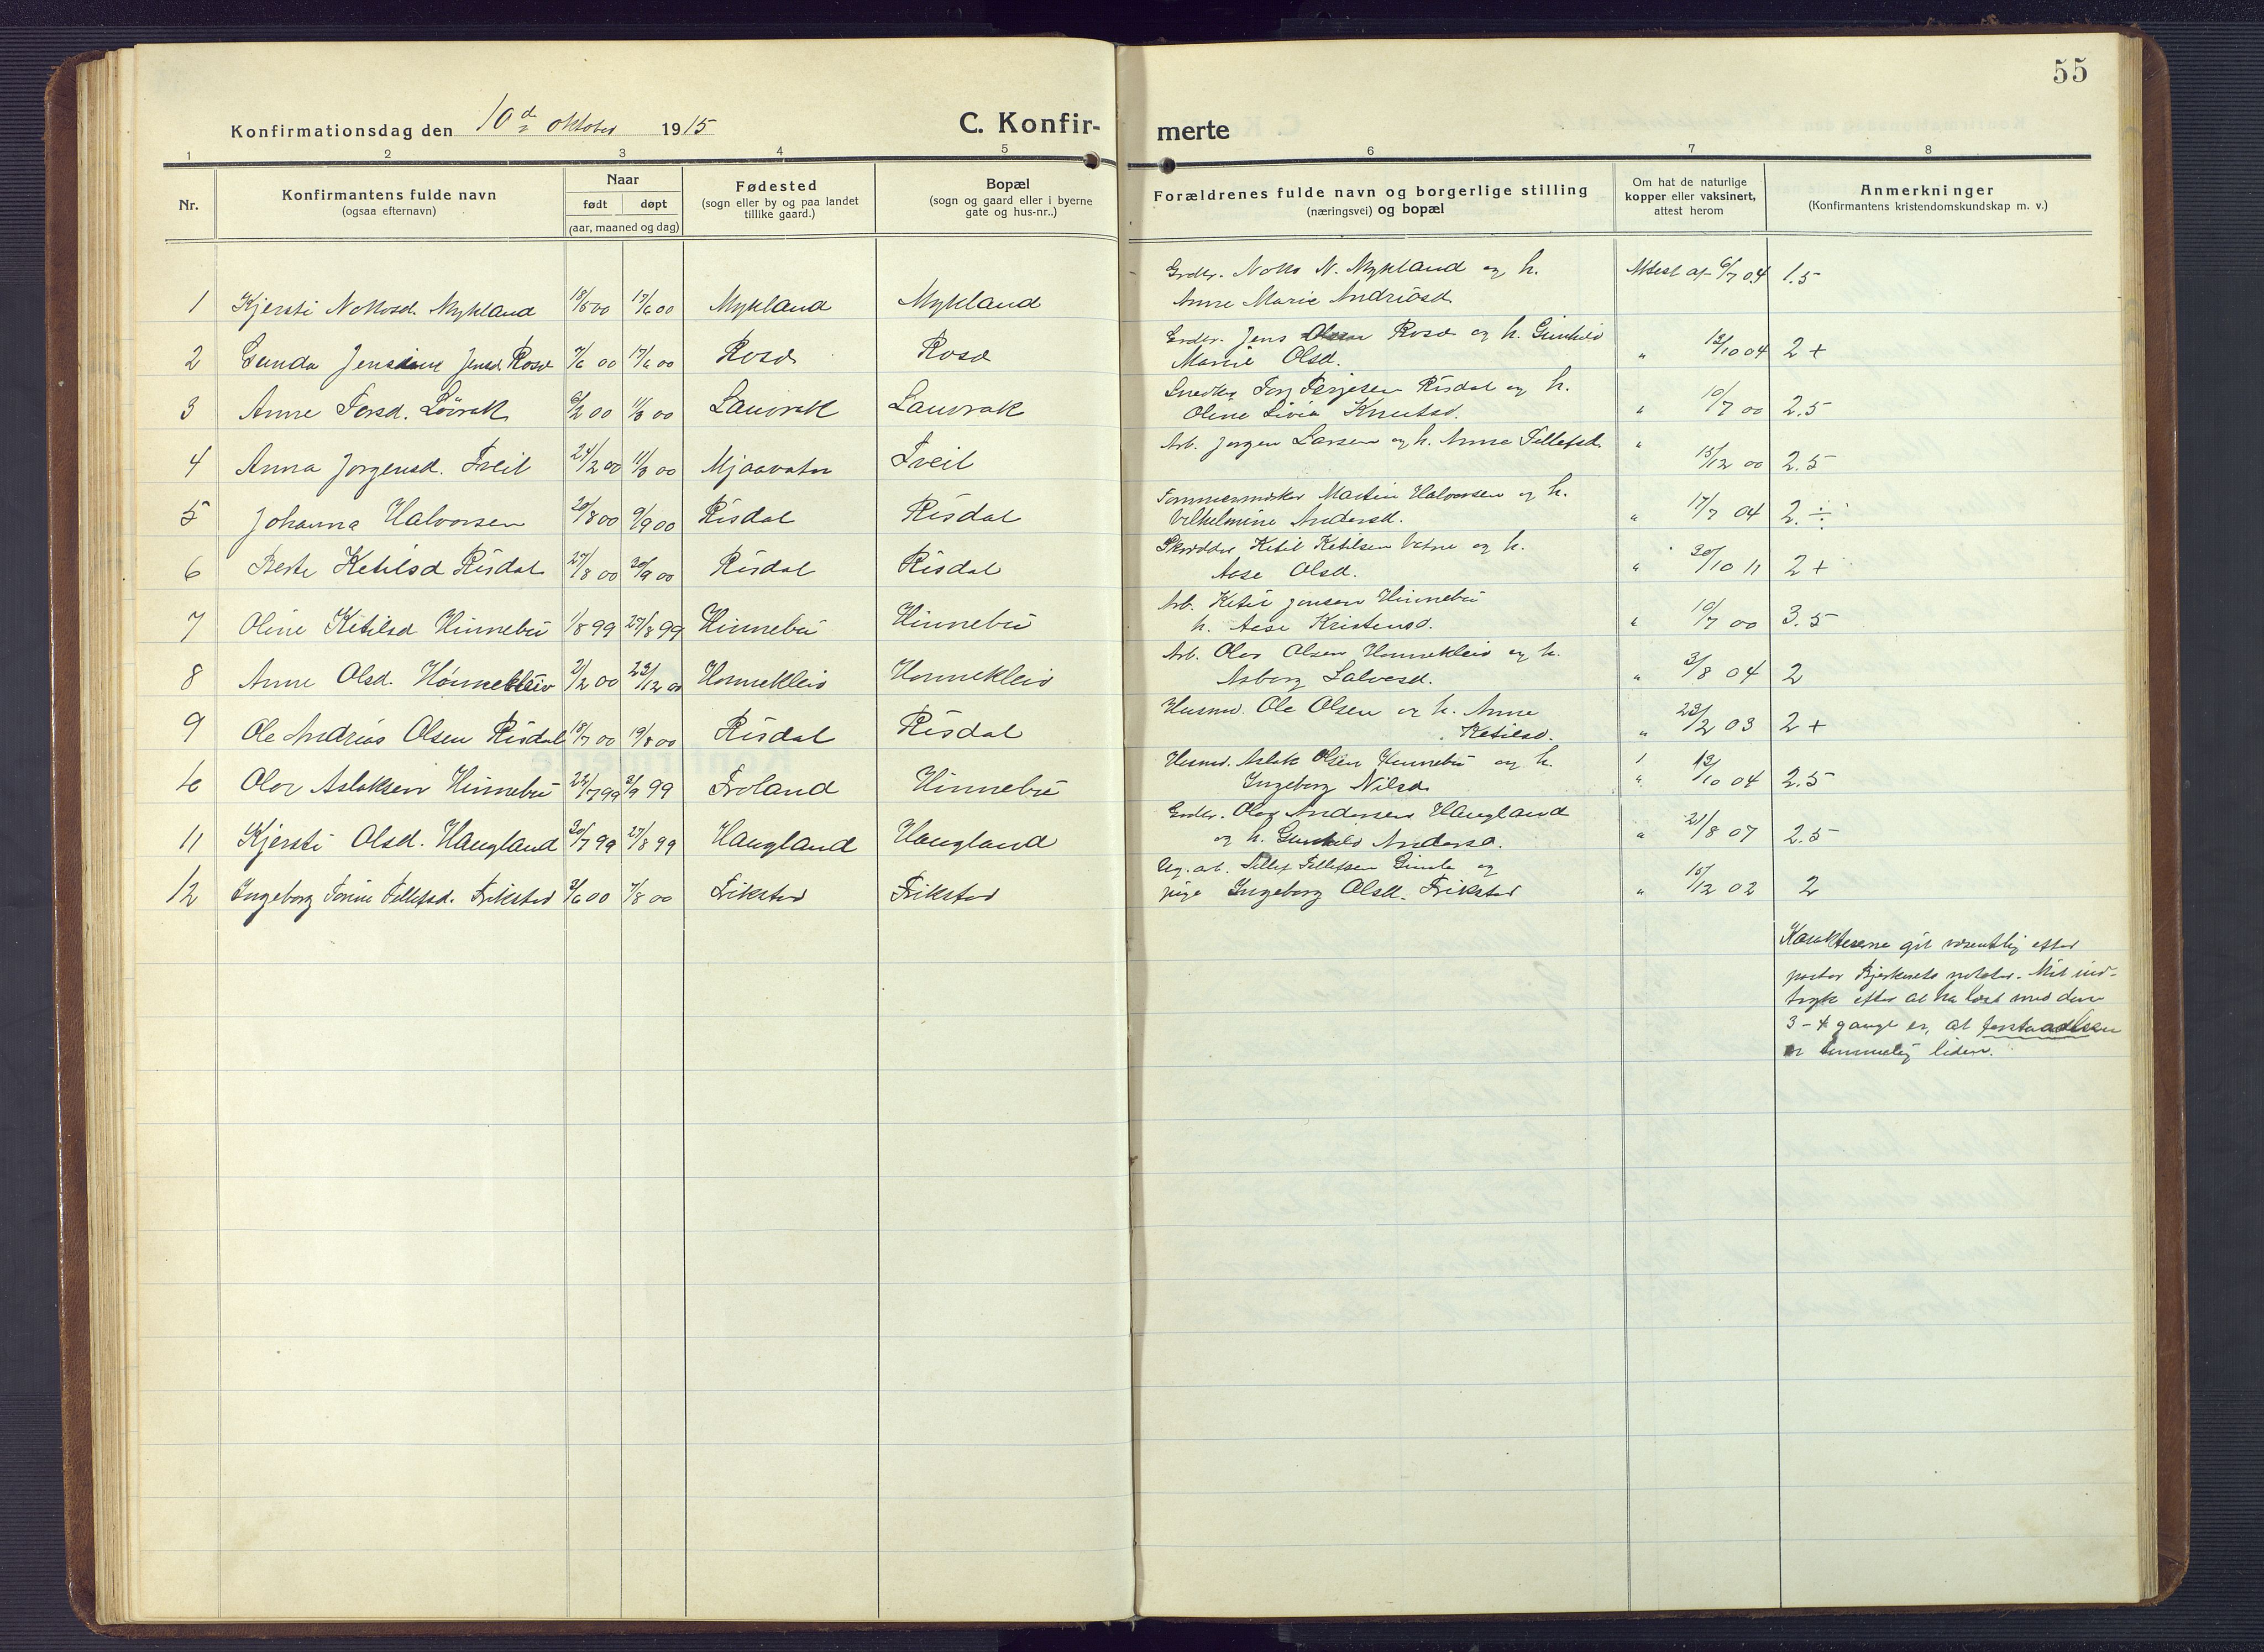 55
Konfirmationsdag den 10de oktober 1915
C. Konfir-
merte
1 2 3 4 5 6 7 8
Nr.
Konfirmantens fulde navn
(ogsaa efternavn)
Naar
født døpt
(aar, maaned og dag)
Fødested
(sogn eller by og paa landet
tillike gaard.)
Bopæl
(sogn og gaard eller i byerne
gate og hus-nr..)
Forældrenes fulde navn og borgerlige stilling
(næringsvei) og bopæl
Om hat de naturlige
kopper eller vaksinert,
attest herom
Anmerkninger
(Konfirmantens kristendomskundskap m. v.)
Grdbr. Notto N. Mykland og h. Attest af 6/7 04 1.5
1 Kjersti Nottosd. Mykland 18/5 00 17/6 00 Mykland Mykland Anne Marie Andriasd.
Grdbr. Jens Rosø og h. Gunhild
2 Gunda Jensine Jensd. Rosø 7/6 00 17/6 00 Rosø Rosø Marie Olsd. " 12/10 04 2+
Snedker Torj Terjesen Risdal og h.
3 Anne Torsd. Løvrak 6/2 00 11/3 00 Lauvrak Lauvrak Oline Livia Knutsd. " 10/7 00 2.5
Arb. Jorgen Larsen og h. Anne Tellefsd. "
4 Anna Jorgensd. Tveit 24/2 00 11/3 00 Mjaavatn Tveit 15/12 00 2.5
Tømmermisker Martin Halvorsen og h.
5 Johanna Halvorsen 20/8 00 9/9 00 Risdal Risdal Vilhelmine Andersd. " 17/7 04 2.÷
Skrædder Ketil Ketilsen Vatne og h.
6 Berte Ketilsd Risdal 27/8 00 30/9 00 Risdal Risdal Aase Olsd. " 30/10 11 2+
Arb. Ketil Jensen Hinnebu
7 Oline Ketilsd Hinnebu 1/8 99 27/8 99 Hinnebu Hinnebu h. Aase Kristensd. " 10/7 00 3.5
Arb. Olav Olsen Honnekleiv og h.
8 Anne Olsd. Hønnekleiv 21/2 00 23/12 00 Honnekleiv Honnekleiv Asborg Salvesd. " 3/8 04 2
Husmd. Ole Olsen og h. Anne
9 Ole Andrias Olsen Risdal 18/7 00 19/8 00 Risdal Risdal Ketilsd. " 23/2 03 2+
Husmd. Aslak Olsen Hinnebu og h.
10 Olav Aslaksen Hinnebu 22/7 99 3/9 99 Froland Hinnebu Ingeborg Nilsd. " 12/10 04 2.5
Grdbr. Olav Andersen Haugland
11 Kjersti Olsd. Haugland 30/7 99 27/8 99 Haugland Haugland og h. Gunhild Andersd. " 21/8 07 2.5
Ug. arb. Tellef Tellefsen Gimle og
12 Ingeborg Torine Tellefsd. Frikstad 3/6 00 7/8 00 Frikstad Frikstad pige Ingeborg Olsd. Frikstad " 15/12 02 2
Karakterene git væsentlig efter
pastor Bjerknets notater. Mit ind-
tryk efter at ha læst med dem
3-4 gange er, at forstaaelsen
er temmelig liden.